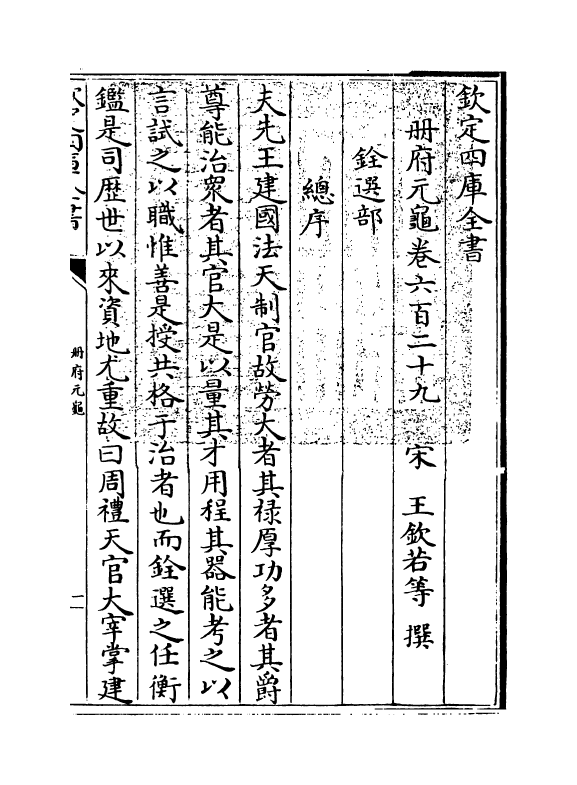 欽定四庫全書
册府元龜卷六百二十九 宋 王欽若等 撰
銓選部
總序
夫先王建國法天制官故勞大者其禄厚功多者其爵
尊能治衆者其官大是以量其才用程其器能考之以
言試之以職惟善是授共格于治者也而銓選之任衡
鑑是司歷世以來資地尤重故曰周禮天官大宰掌建
册府元龜
二